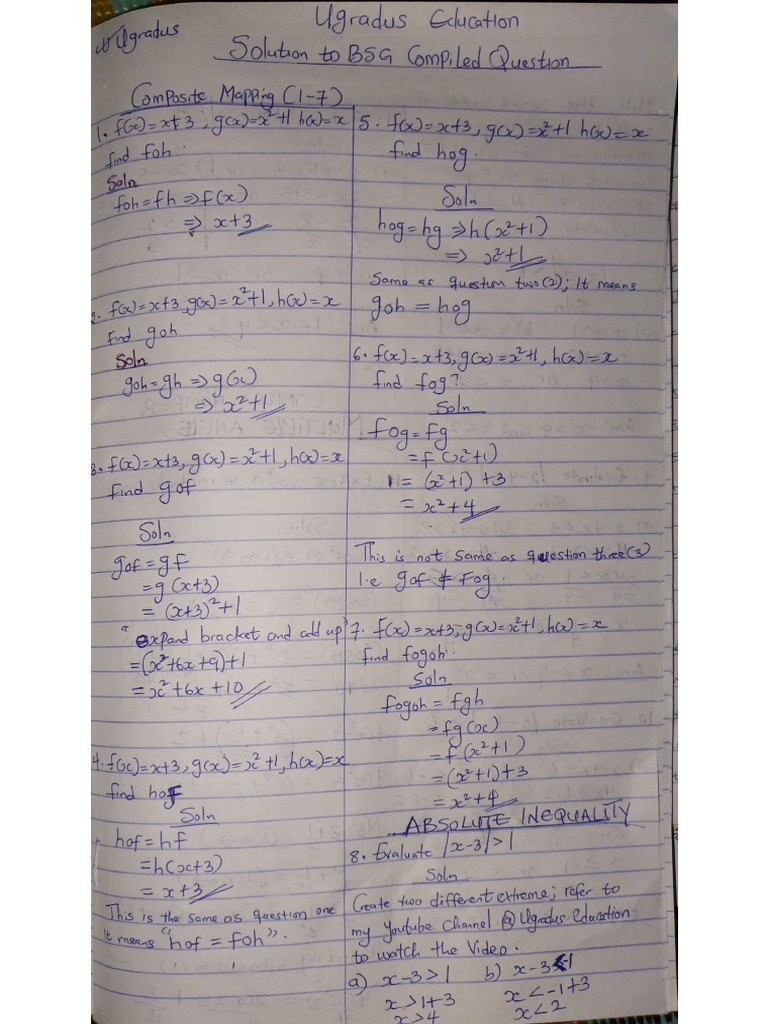 Ugradus
Ugradus Education
Solution to BSG Compiled Question
Composite Mapping (1-7)
1. f(x)=x+3, g(x)=x²+1 h(x)=x
find foh.
Soln
foh = fh ⇒ f(x)
⇒ x+3
2. f(x)=x+3, g(x)=x²+1, h(x)=x
find goh
Soln
goh = gh ⇒ g(x)
⇒ x²+1
3. f(x)=x+3, g(x)=x²+1, h(x)=x
find gof
Soln
gof = gf
= g(x+3)
= (x+3)²+1
"expand bracket and add up"
= (x²+6x+9)+1
= x²+6x+10
4. f(x)=x+3, g(x)=x²+1, h(x)=x
find hof
Soln
hof = hf
= h(x+3)
= x+3
This is the same as question one
It means "hof = foh".
5. f(x)=x+3, g(x)=x²+1 h(x)=x
find hog.
Soln
hog = hg ⇒ h(x²+1)
⇒ x²+1
Same as question two(2); It means
goh = hog
6. f(x)=x+3, g(x)=x²+1, h(x)=x
find fog?
Soln
fog = fg
= f(x²+1)
= (x²+1)+3
= x²+4
This is not same as question three(3)
I.e gof ≠ Fog.
7. f(x)=x+3, g(x)=x²+1, h(x)=x
find fogoh.
Soln
fogoh = fgh
= fg(x)
= f(x²+1)
= (x²+1)+3
= x²+4
ABSOLUTE INEQUALITY
8. Evaluate |x-3|>1
Soln
Create two different extreme; refer to
my Youtube Channel @Ugradus Education
to watch the Video.
a) x-3>1 b) x-3<-1
x>1+3 x<-1+3
x>4 x<2